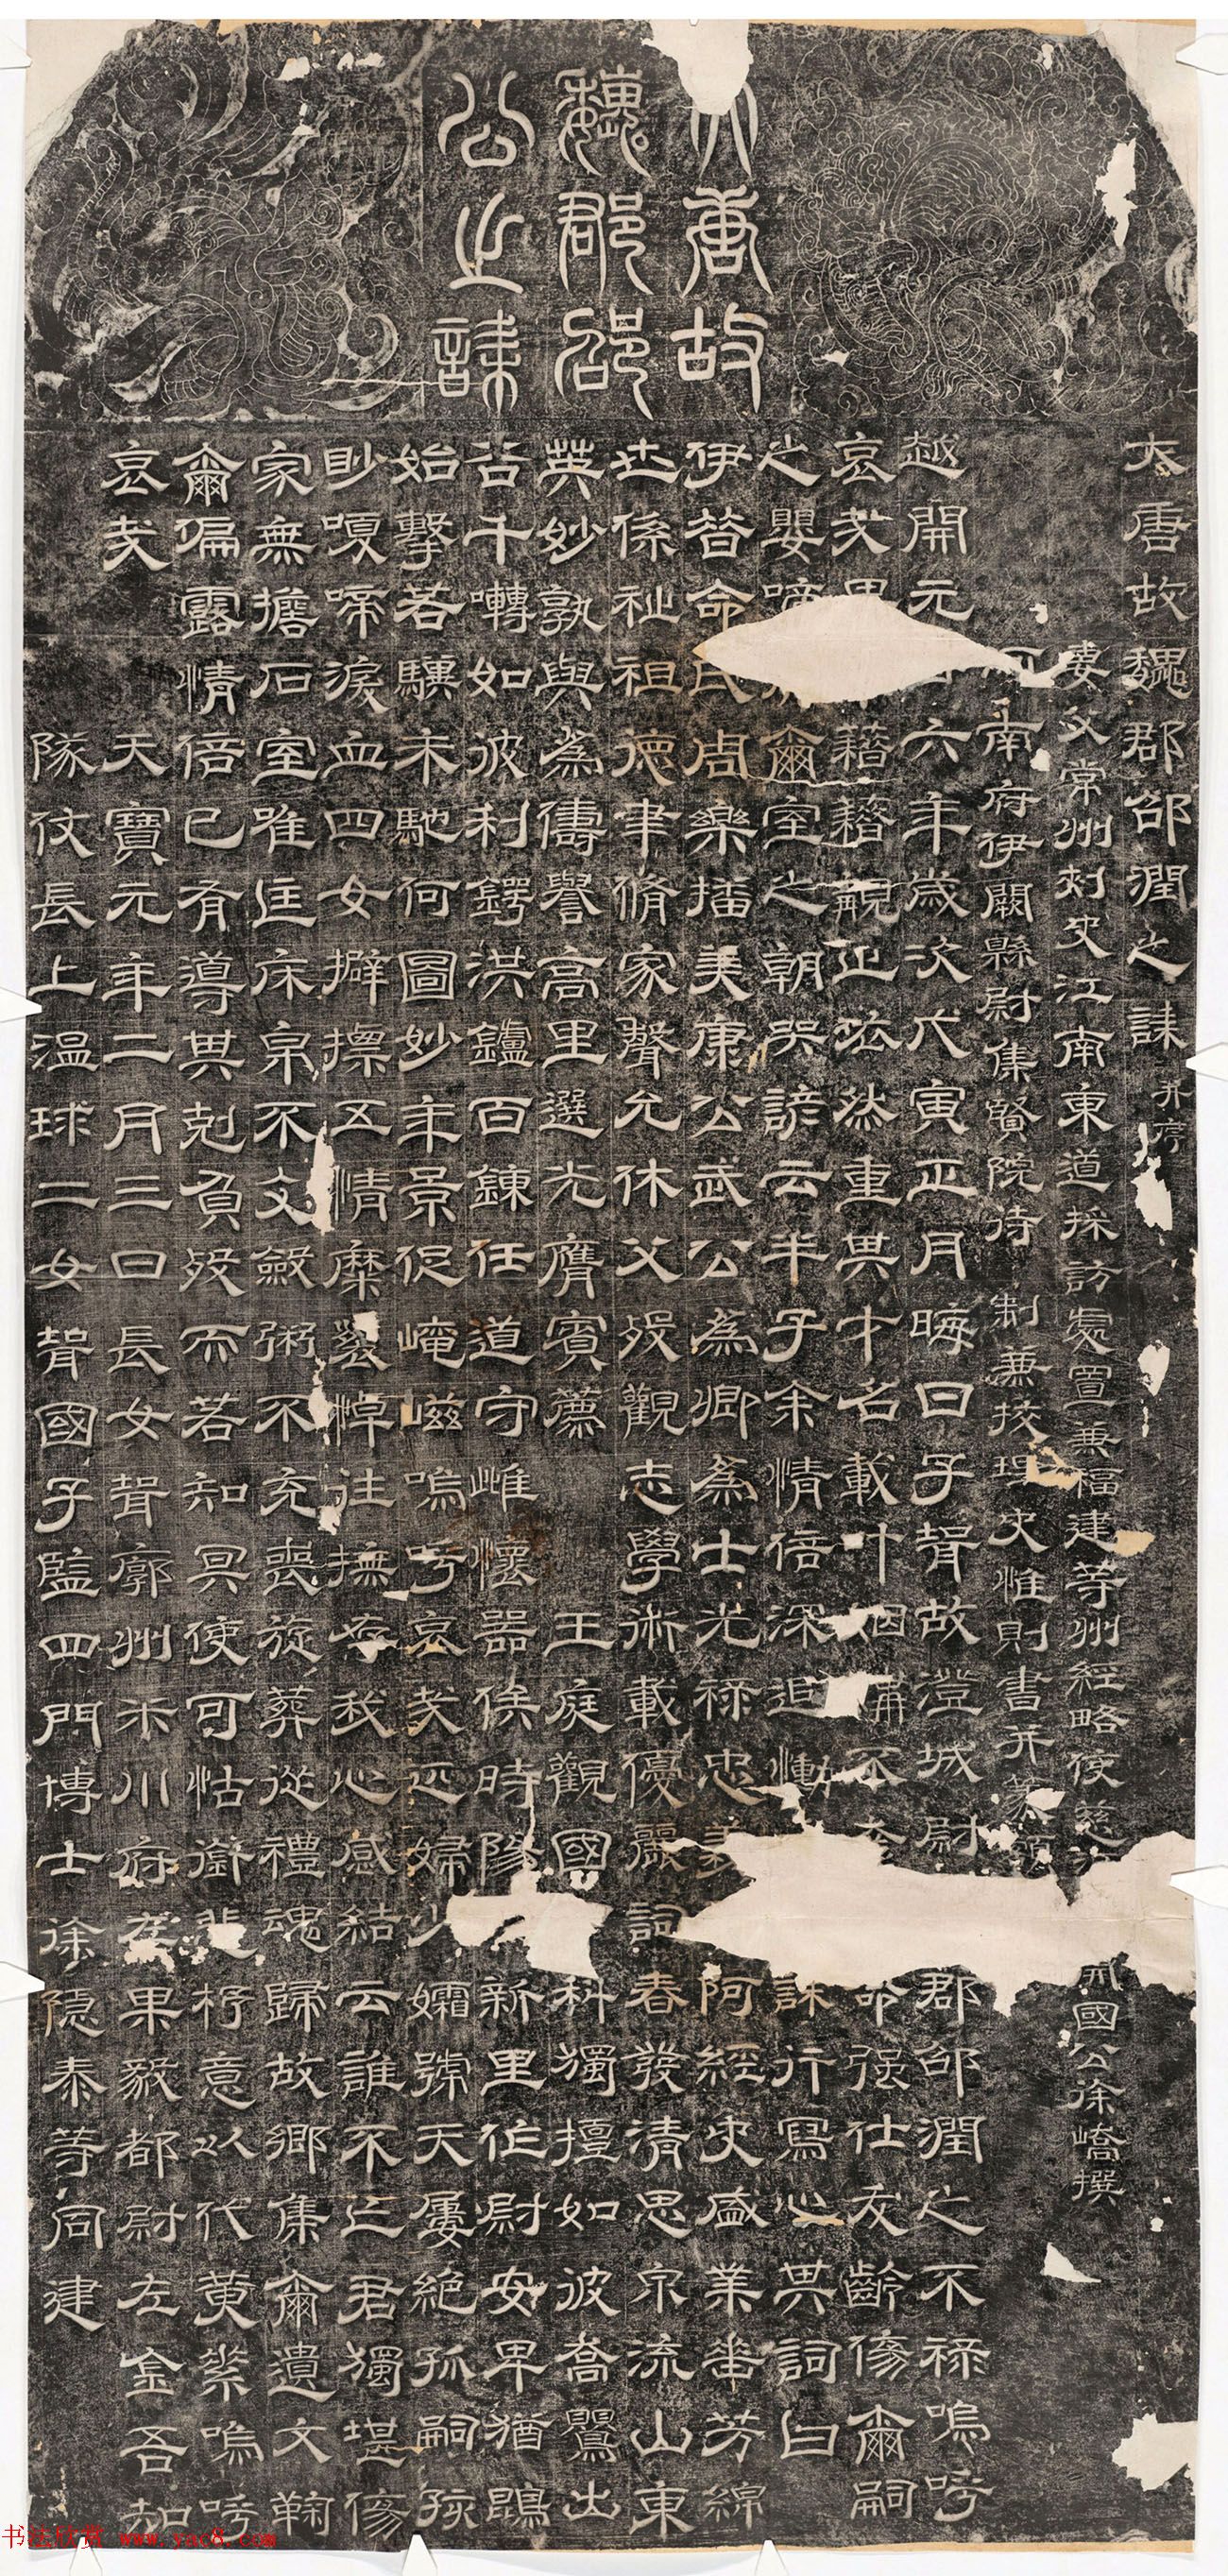 唐故
魏郡邵
公之誄
大唐故魏郡邵潤之誄并序
妻父常州刺史江南東道採訪處置兼福建等州經略使慈
國公徐嶠撰
南府伊闕縣尉集賢院待制兼校理史惟則書并篆額
越開元
六年歲次戊寅正月晦日子壻故澄城尉
郡邵潤之不祿嗚呼
哀哉
藉藉覿正茲然重其才名載
不
命强仕友齡傷爾嗣
之嬰啼
爾室之朝哭諺云半子余情倍深追慟
誄行寫心其詞曰
伊昔命氏尚樂播美康公武公為卿為士光祿忠
阿經史盛業番芳綿
世係祉祖德聿脩家聲允休父歿觀志學術載優麗詞春發清思泉流山東
英妙孰與為儔譽高里選光膺賓薦
王庭觀國
科獨擅如彼喬鸎出
谷千囀如彼利鍔洪鑪百鍊任道守雌懷器俟時隊
新里作尉安卑猶鵾
始擊若驥未馳何圖妙年景促崦嵫嗚呼哀哉匹婦少
孀號天屢絕孤嗣孩
眇嗄啼淚血四女擗摽五情糜裂悼往撫存我心感結云誰不亡君獨堪傷
家無擔石室唯匡床帛不文斂粥不充喪旋葬從禮魂歸故鄉集爾遺文鞠
爾偏露情倍己有導其剋負歿而若知冥使可怙銜悲抒意以代黃絫嗚呼
哀哉
天寶元年二月三日長女聟廓州米川府左果毅都尉左金吾知
隊仗長上溫球二女聟國子監四門博士徐隱泰等同建
书法欣赏 www.yac8.com